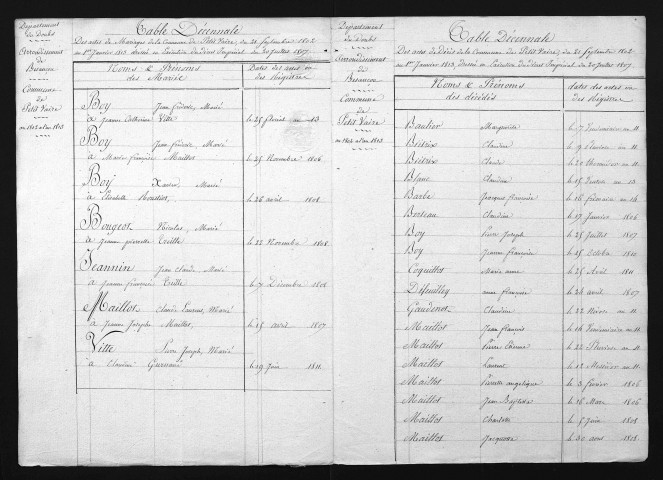 Département
du Doubs
Arrondissement
de
Besancon
Commune
de
Petit Vaire
an 1802 et an 1813
Table Décennale
Des actes de Mariages de la Commune de Petit Vaire, du 21 Septembre 1802
au 1er Janvier 1813 dressée en Exécution du décret Impérial du 20 Juillet 1807.
Noms & Prénoms
des Mariés
Dates des actes ou
des Registres
Boy Jean fréderic, Marié
à Jeanne Catherine Vitte le 25 février an 13
Boy Jean fréderic, Marié
à françoise Maillot le 25 Novembre 1806
Boy Xavier, Marié
à le 26 avril 1808
Bougeot Nicolas, Marié
à Jeanne pierrette le 22 Novembre 1808
Jeannin Jean Claude, Marié
à Jeanne françoise le 7 Décembre 1808
Maillot Claude Laurent, Marié
à Jeanne Josephe Maillot, le 15 avril 1807
Vitte Pierre Joseph, Marié
à Claudine le 19 Juin 1811
Département
du Doubs
Arrondissement
de
Besancon
Commune
de
Petit Vaire
an 1802 et an 1813
Table Décennale
Des actes de Décès de la Commune de Petit Vaire, du 21 Septembre 1802
au 1er Janvier 1813, Dressée en Exécution du décret Impérial du 20 Juillet 1807.
Noms & Prénoms
des décédés
dates des actes ou
des Registres
Marguerite le 17 Vendemiaire an 11
Claudine le 9 an 11
Claude le 20 an 11
Blanc Claudine le 15 an 13
Barbe Jacques françois le 16 frimaire an 14
Claudine le 17 Janvier 1806
Boy Pierre Joseph le 25 Juillet 1807
Boy Jeanne françoise le 25 Octobre 1811
Coquillot Marie anne le 25 Avril 1811
anne françoise le 24 avril 1807
Gaudenot Claudine le 22 Nivose an 11
Maillot Jean françois le 14 Vendemiaire an 11
Maillot Pierre Etienne le 22 an 11
Maillot Laurent le 12 Messidor an 11
Maillot Pierrette angelique le 3 février 1806
Maillot Jean Baptiste le 16 Mars 1806
Maillot Charlotte le 5 Juin 1808
Maillot Jacquotte le 30 aout 1808